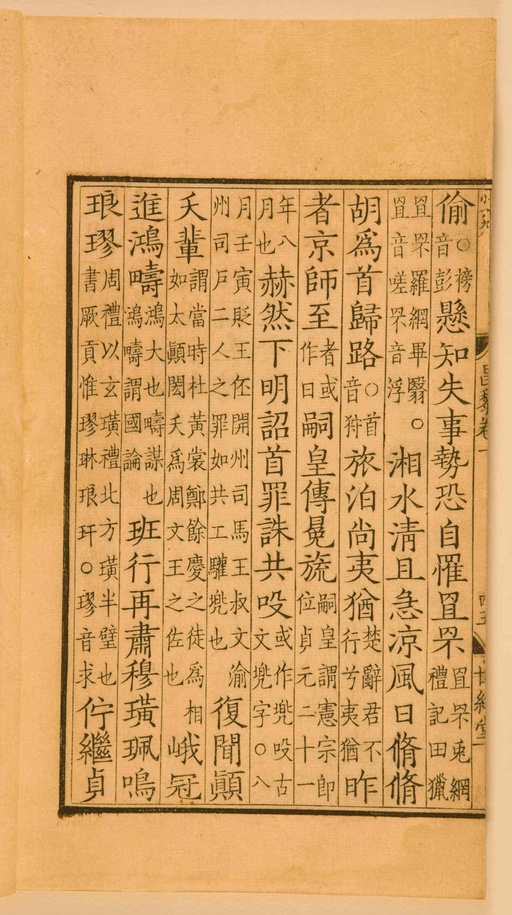 偷○榜音彭懸知失事勢恐自罹罝罘罝罘兎網禮記田獵
罝罘羅網畢翳。罝音嗟罘音浮湘水清且急涼風日脩脩
胡爲首歸路○首音狩旅泊尚夷猶楚辭君不行兮夷猶昨
者京師至者或作日嗣皇傳冕旒嗣皇謂憲宗即位貞元二十一
年八月也赫然下明詔首罪誅共吺或作兠吺古文兠字○八
月壬寅貶王伾開州司馬王叔文渝州司戶二人之罪如共工驩兠也復聞顚
夭輩謂當時杜黃裳鄭餘慶之徒爲相如太顚閎夭爲周文王之佐也峨冠
進鴻疇鴻大也疇謀也鴻疇謂國論班行再肅穆璜珮鳴
琅璆周禮以玄璜禮北方璜半璧也書厥貢惟璆琳琅玕○璆音求佇繼貞